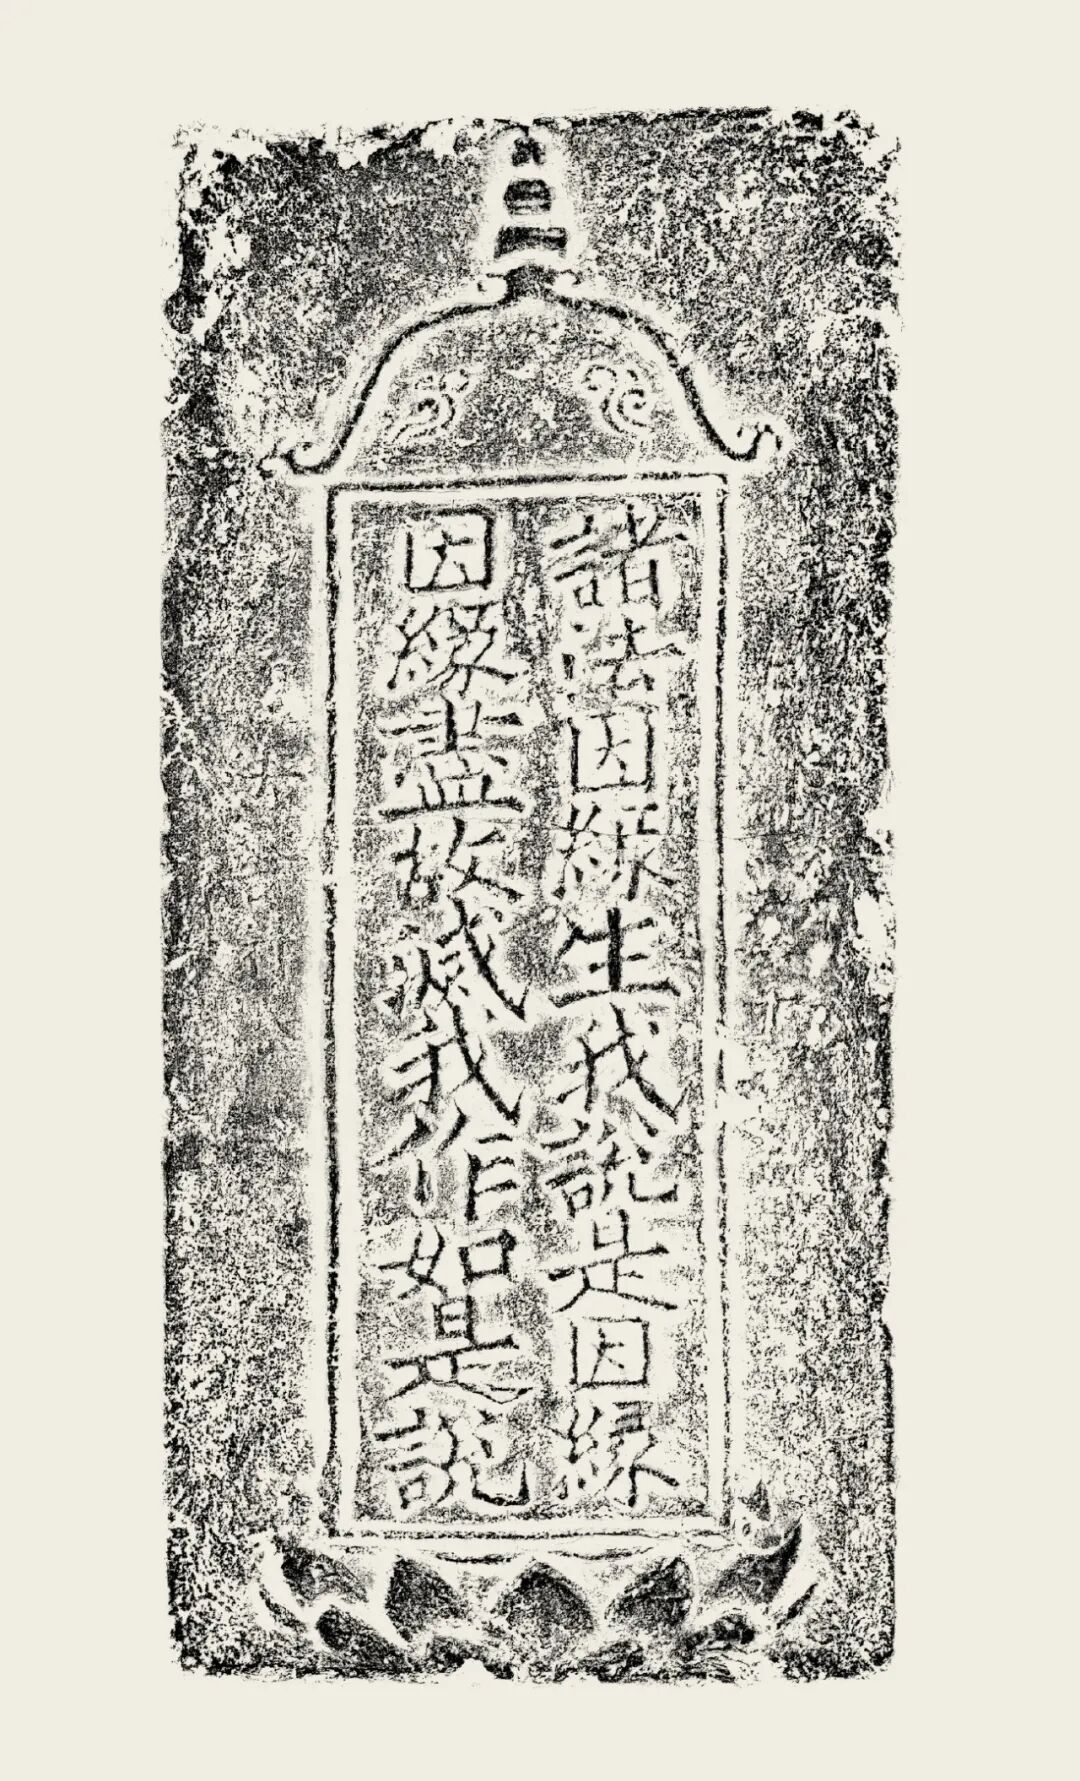 諸法因緣生我說是因緣
因緣盡故滅我作如是說